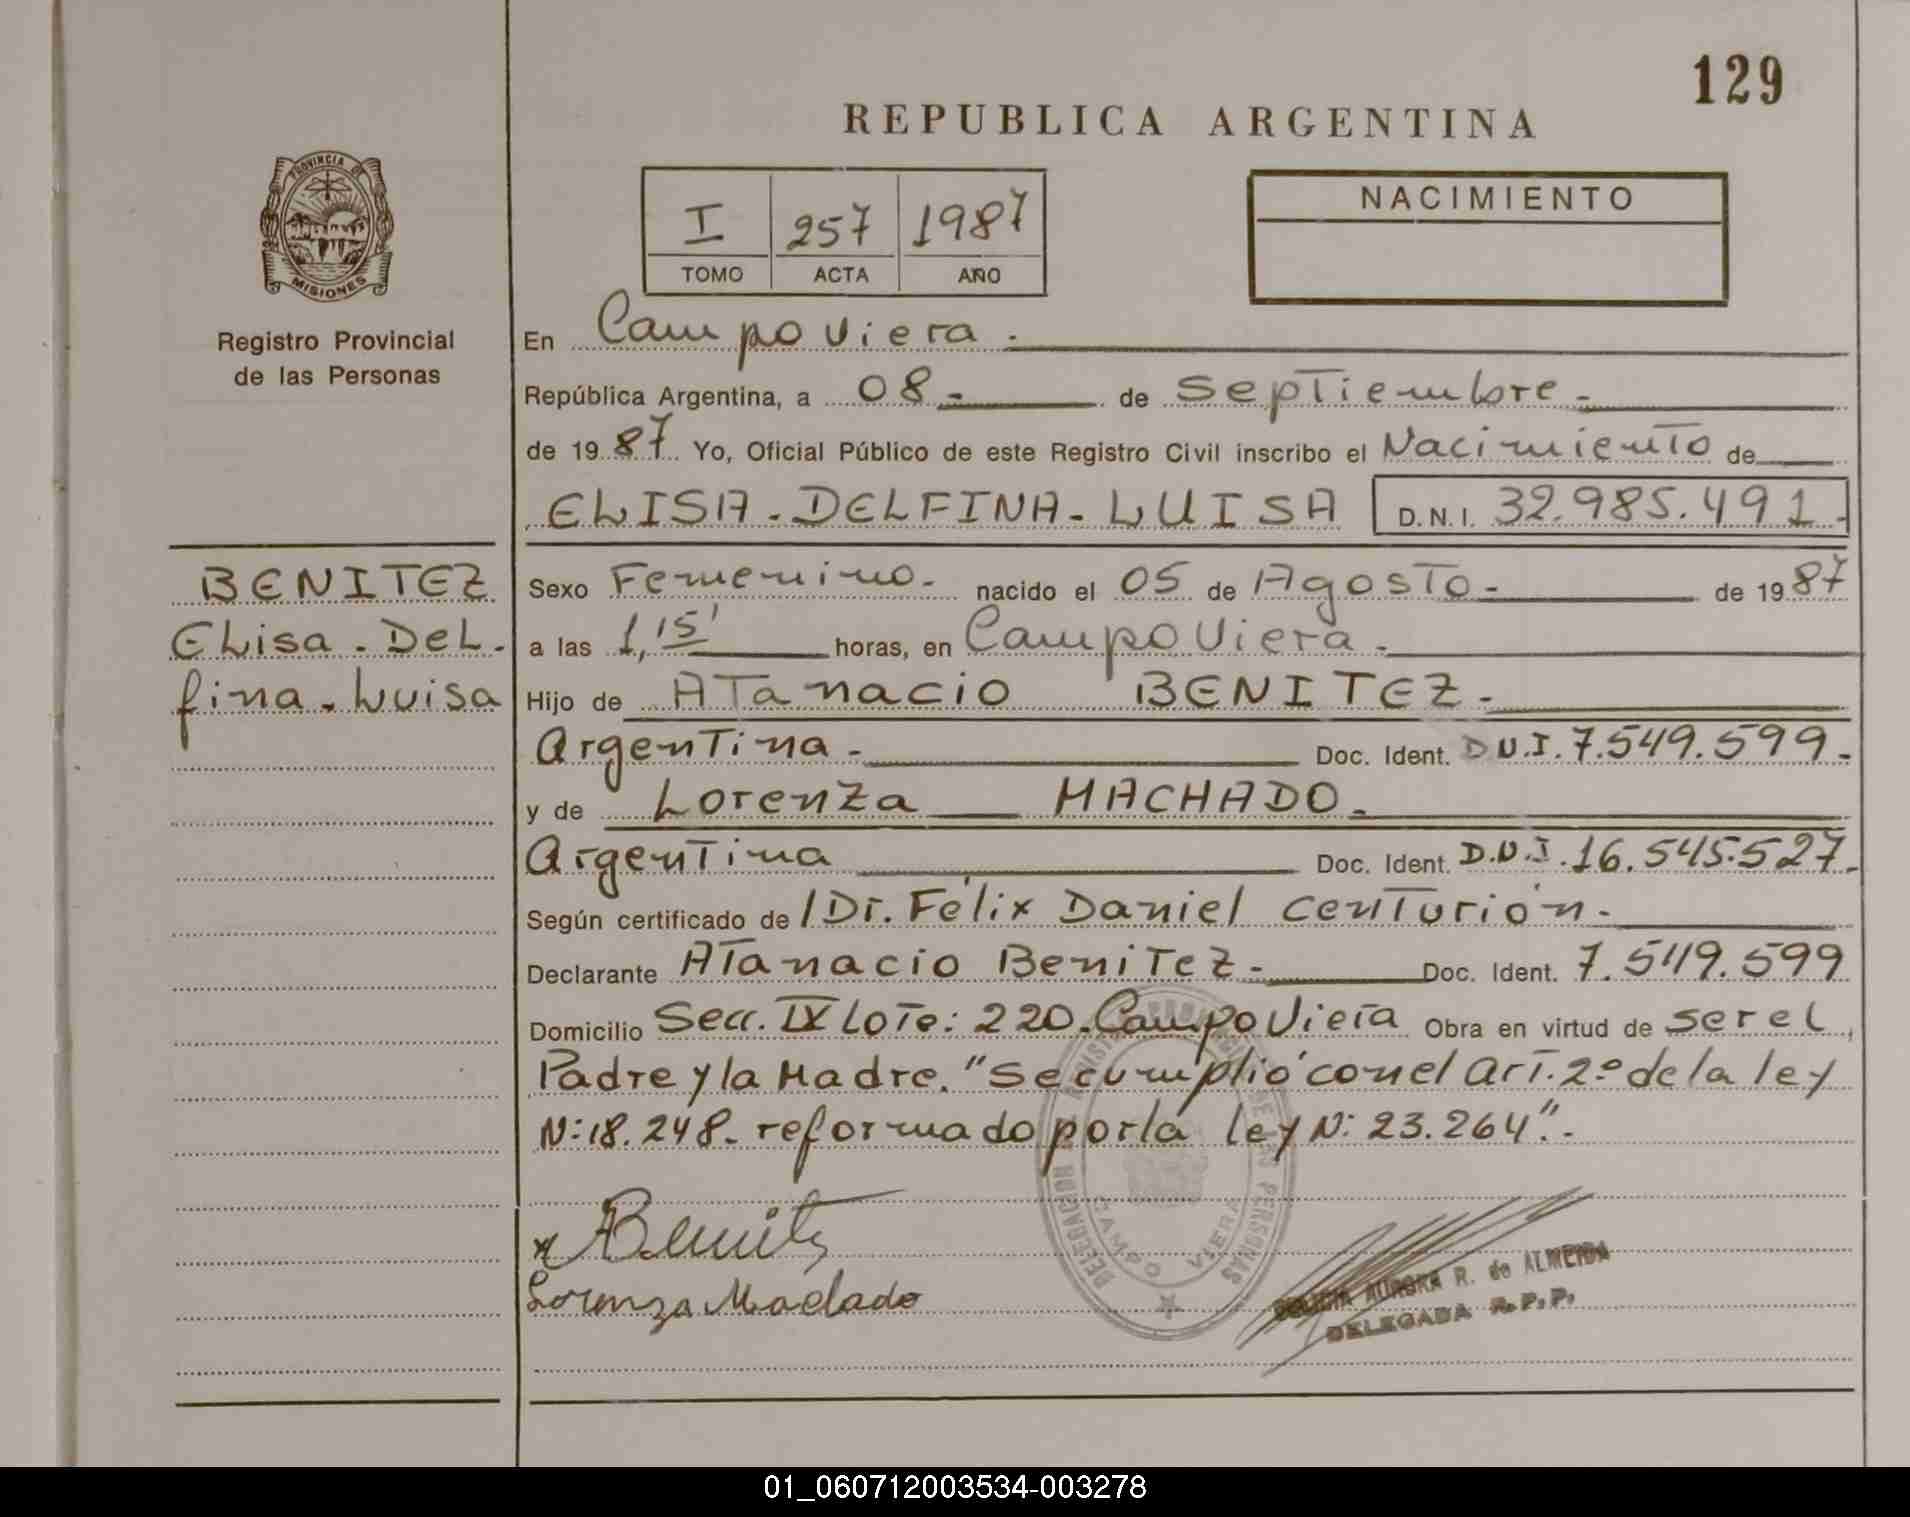 129
REPUBLICA ARGENTINA
PROVINCIA DE
MISIONES
Registro Provincial
de las Personas
I 257 1987
TOMO ACTA AÑO
NACIMIENTO
En Campo Viera.
República Argentina, a 08- de Septiembre.
de 1987 Yo, Oficial Público de este Registro Civil inscribo el Nacimiento de
ELISA-DELFINA-LUISA D.N.I. 32.985.491.
BENITEZ
ELisa-DeL-
fina-Luisa
Sexo Femenino- nacido el 05 de Agosto- de 1987
a las 1,15' horas, en Campo Viera-
Hijo de ATanacio BENITEZ-
ArgenTina- Doc. Ident. D.N.I. 7.549.599-
y de Lorenza MACHADO-
ArgenTina Doc. Ident. D.N.I. 16.545.527-
Según certificado de /Dr. Félix Daniel CenTurión-
Declarante ATanacio BeniTez- Doc. Ident. 7.549.599
Domicilio Secc. IX LoTe: 220. Campo Viera Obra en virtud de ser el
Padre y la Madre. "Se cumplió con el ArT. 2º de la ley
N: 18.248- reformado por la ley N: 23.264".-
ABenitz
Lorenza Machado
DELEGACION
DE LAS PERSONAS
CAMPO VIERA
AURORA R. de ALMEIDA
DELEGADA R.P.P.
01_060712003534-003278